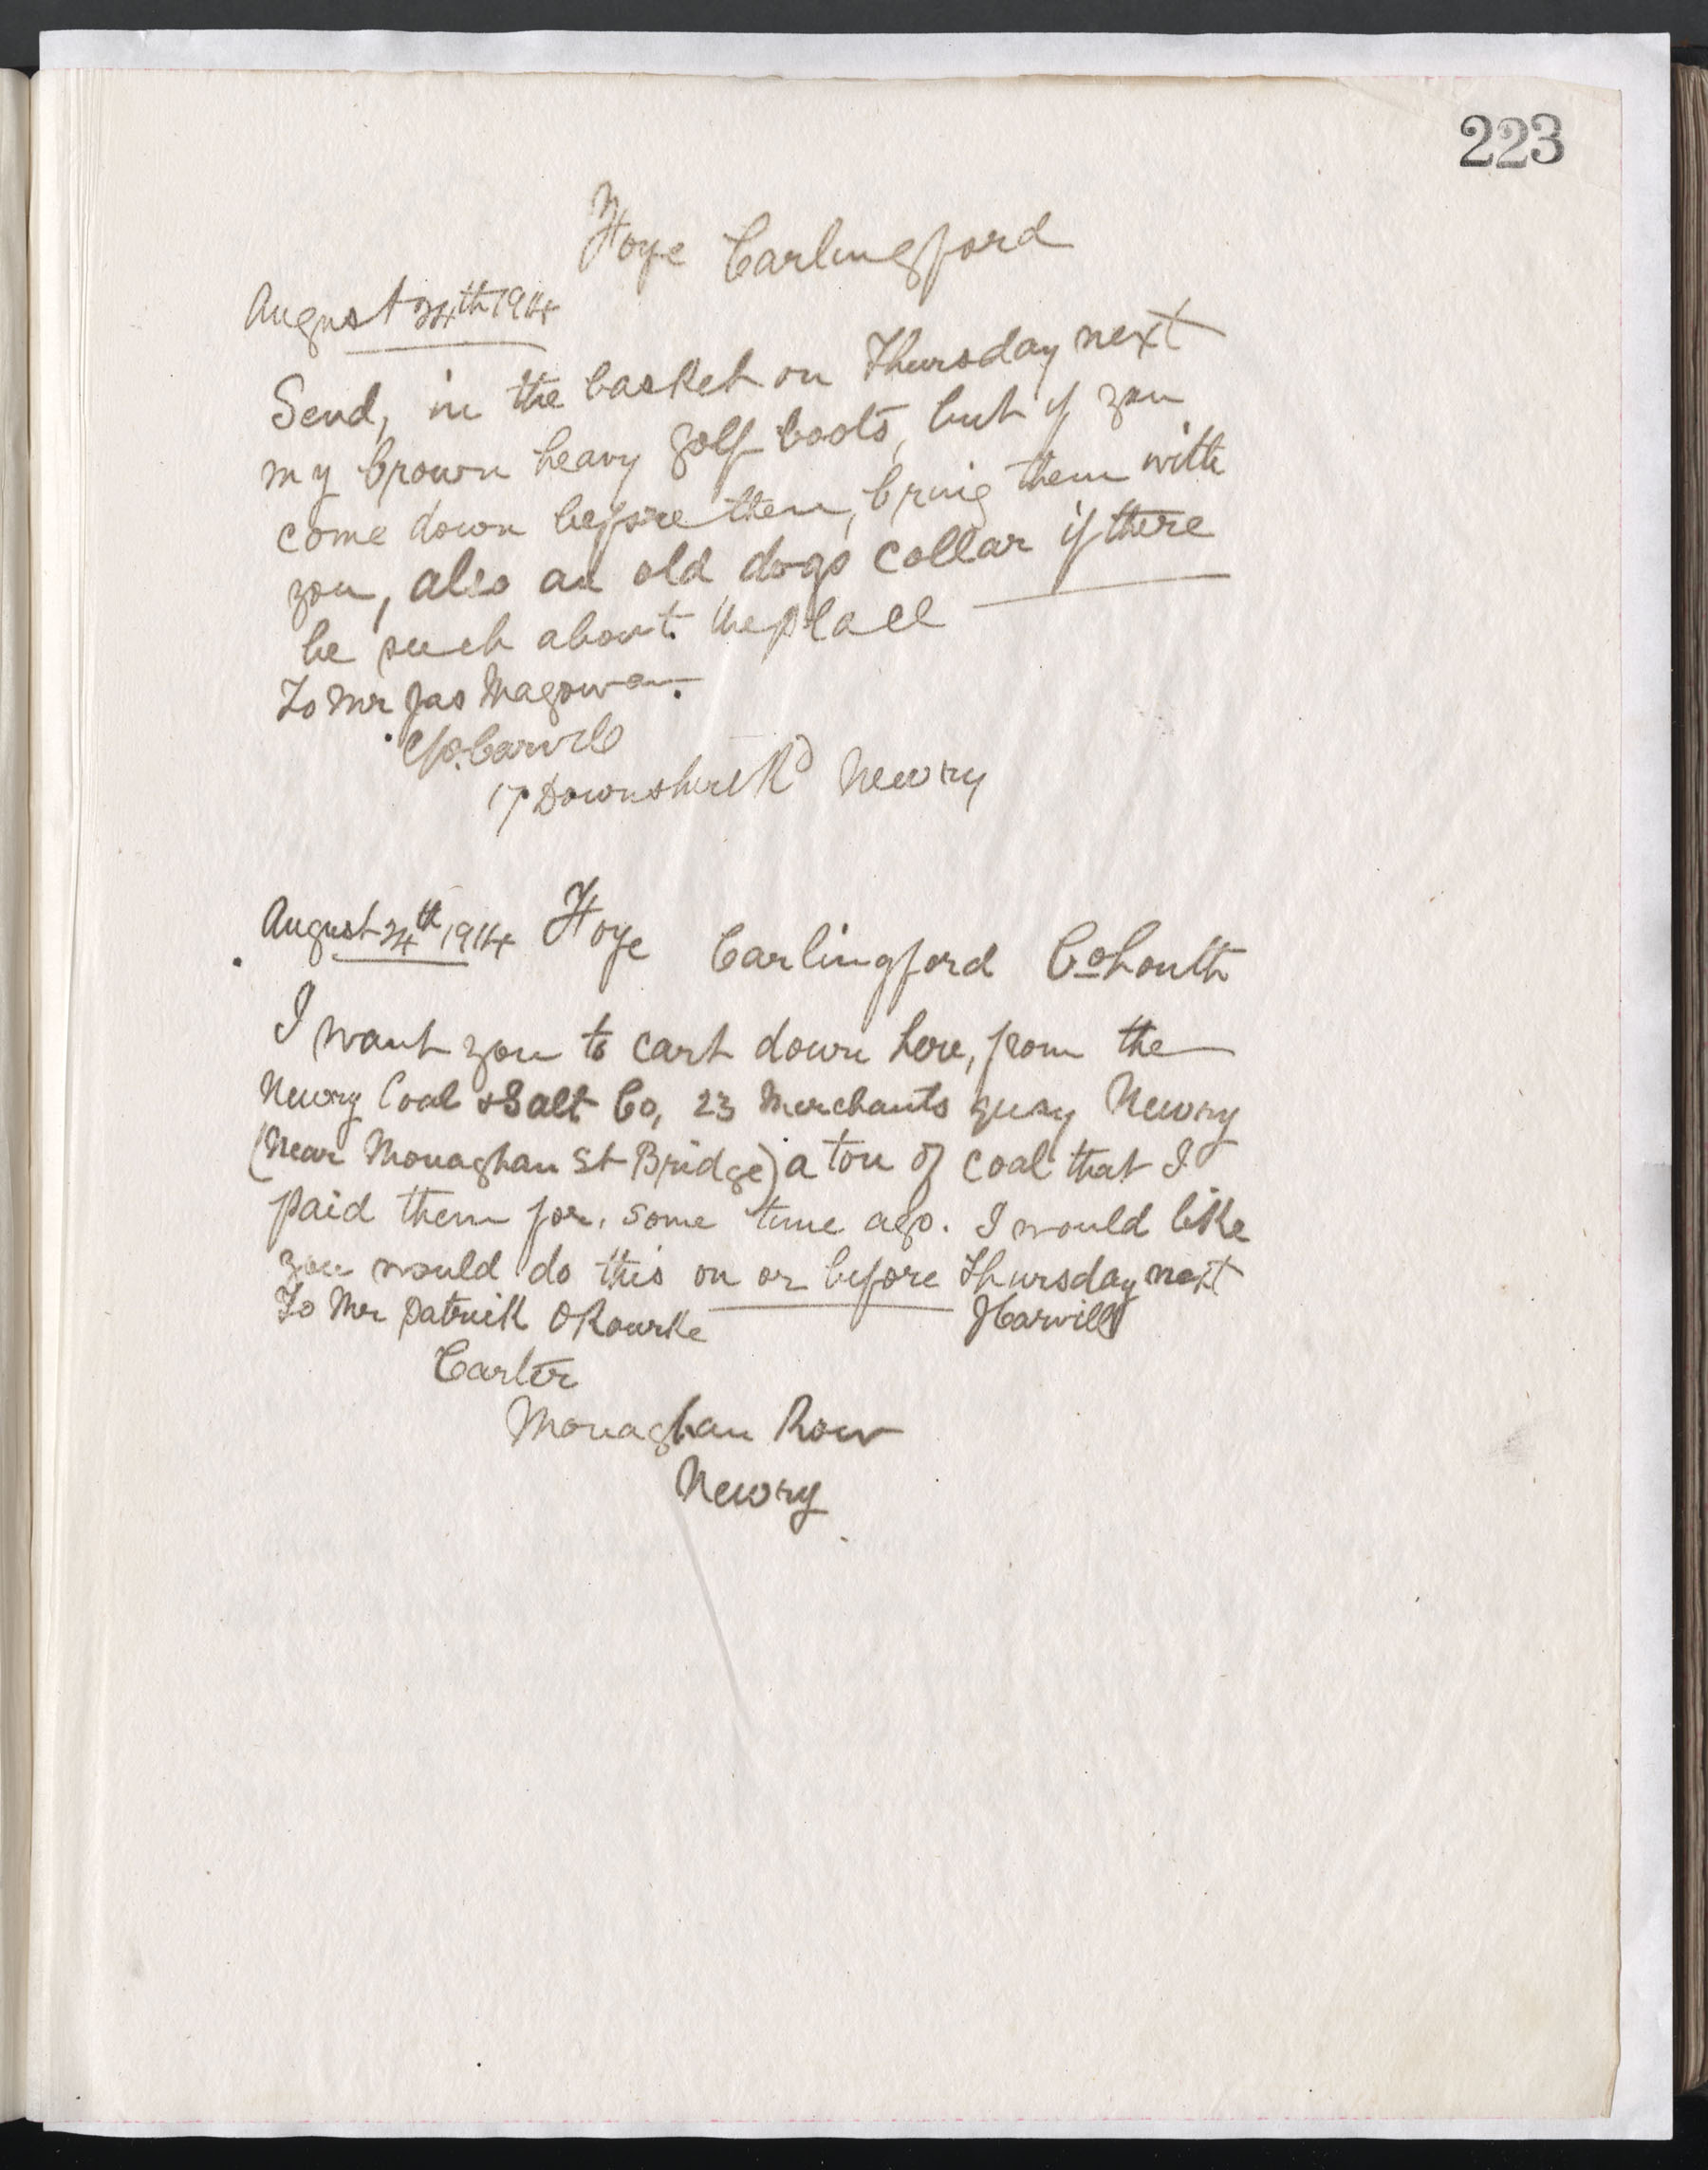 223
Foye Carlingford
August 24th 1914
Send, in the basket on Thursday next
my brown heavy golf boots, but if you
come down before then, bring them with
you, also an old dogs collar if there
be such about the place
To Mr Jas Magowan.
C/o. Carvill
17 Downshire Rd Newry
August 24th 1914 Foye Carlingford Co Louth
I want you to cart down here, from the
Newry Coal & Salt Co, 23 Merchants quay Newry
(Near Monaghan St Bridge) a ton of coal that I
paid them for, some time ago. I would like
you would do this on or before Thursday next
To Mr Patrick ORourke JCarvill
Carter
Monaghan Row
Newry